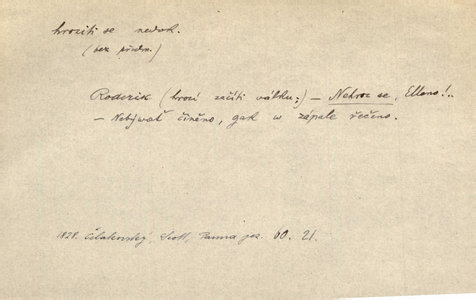 hroziti se nedok.
(bez předm.)
Roderik (hrozí začíti válku:) – Nehroz se, Elleno!..
– Nebývať činěno, gak w zápale řečeno.
1828. Čelakovský, Scott, Panna jez. 60. 21.